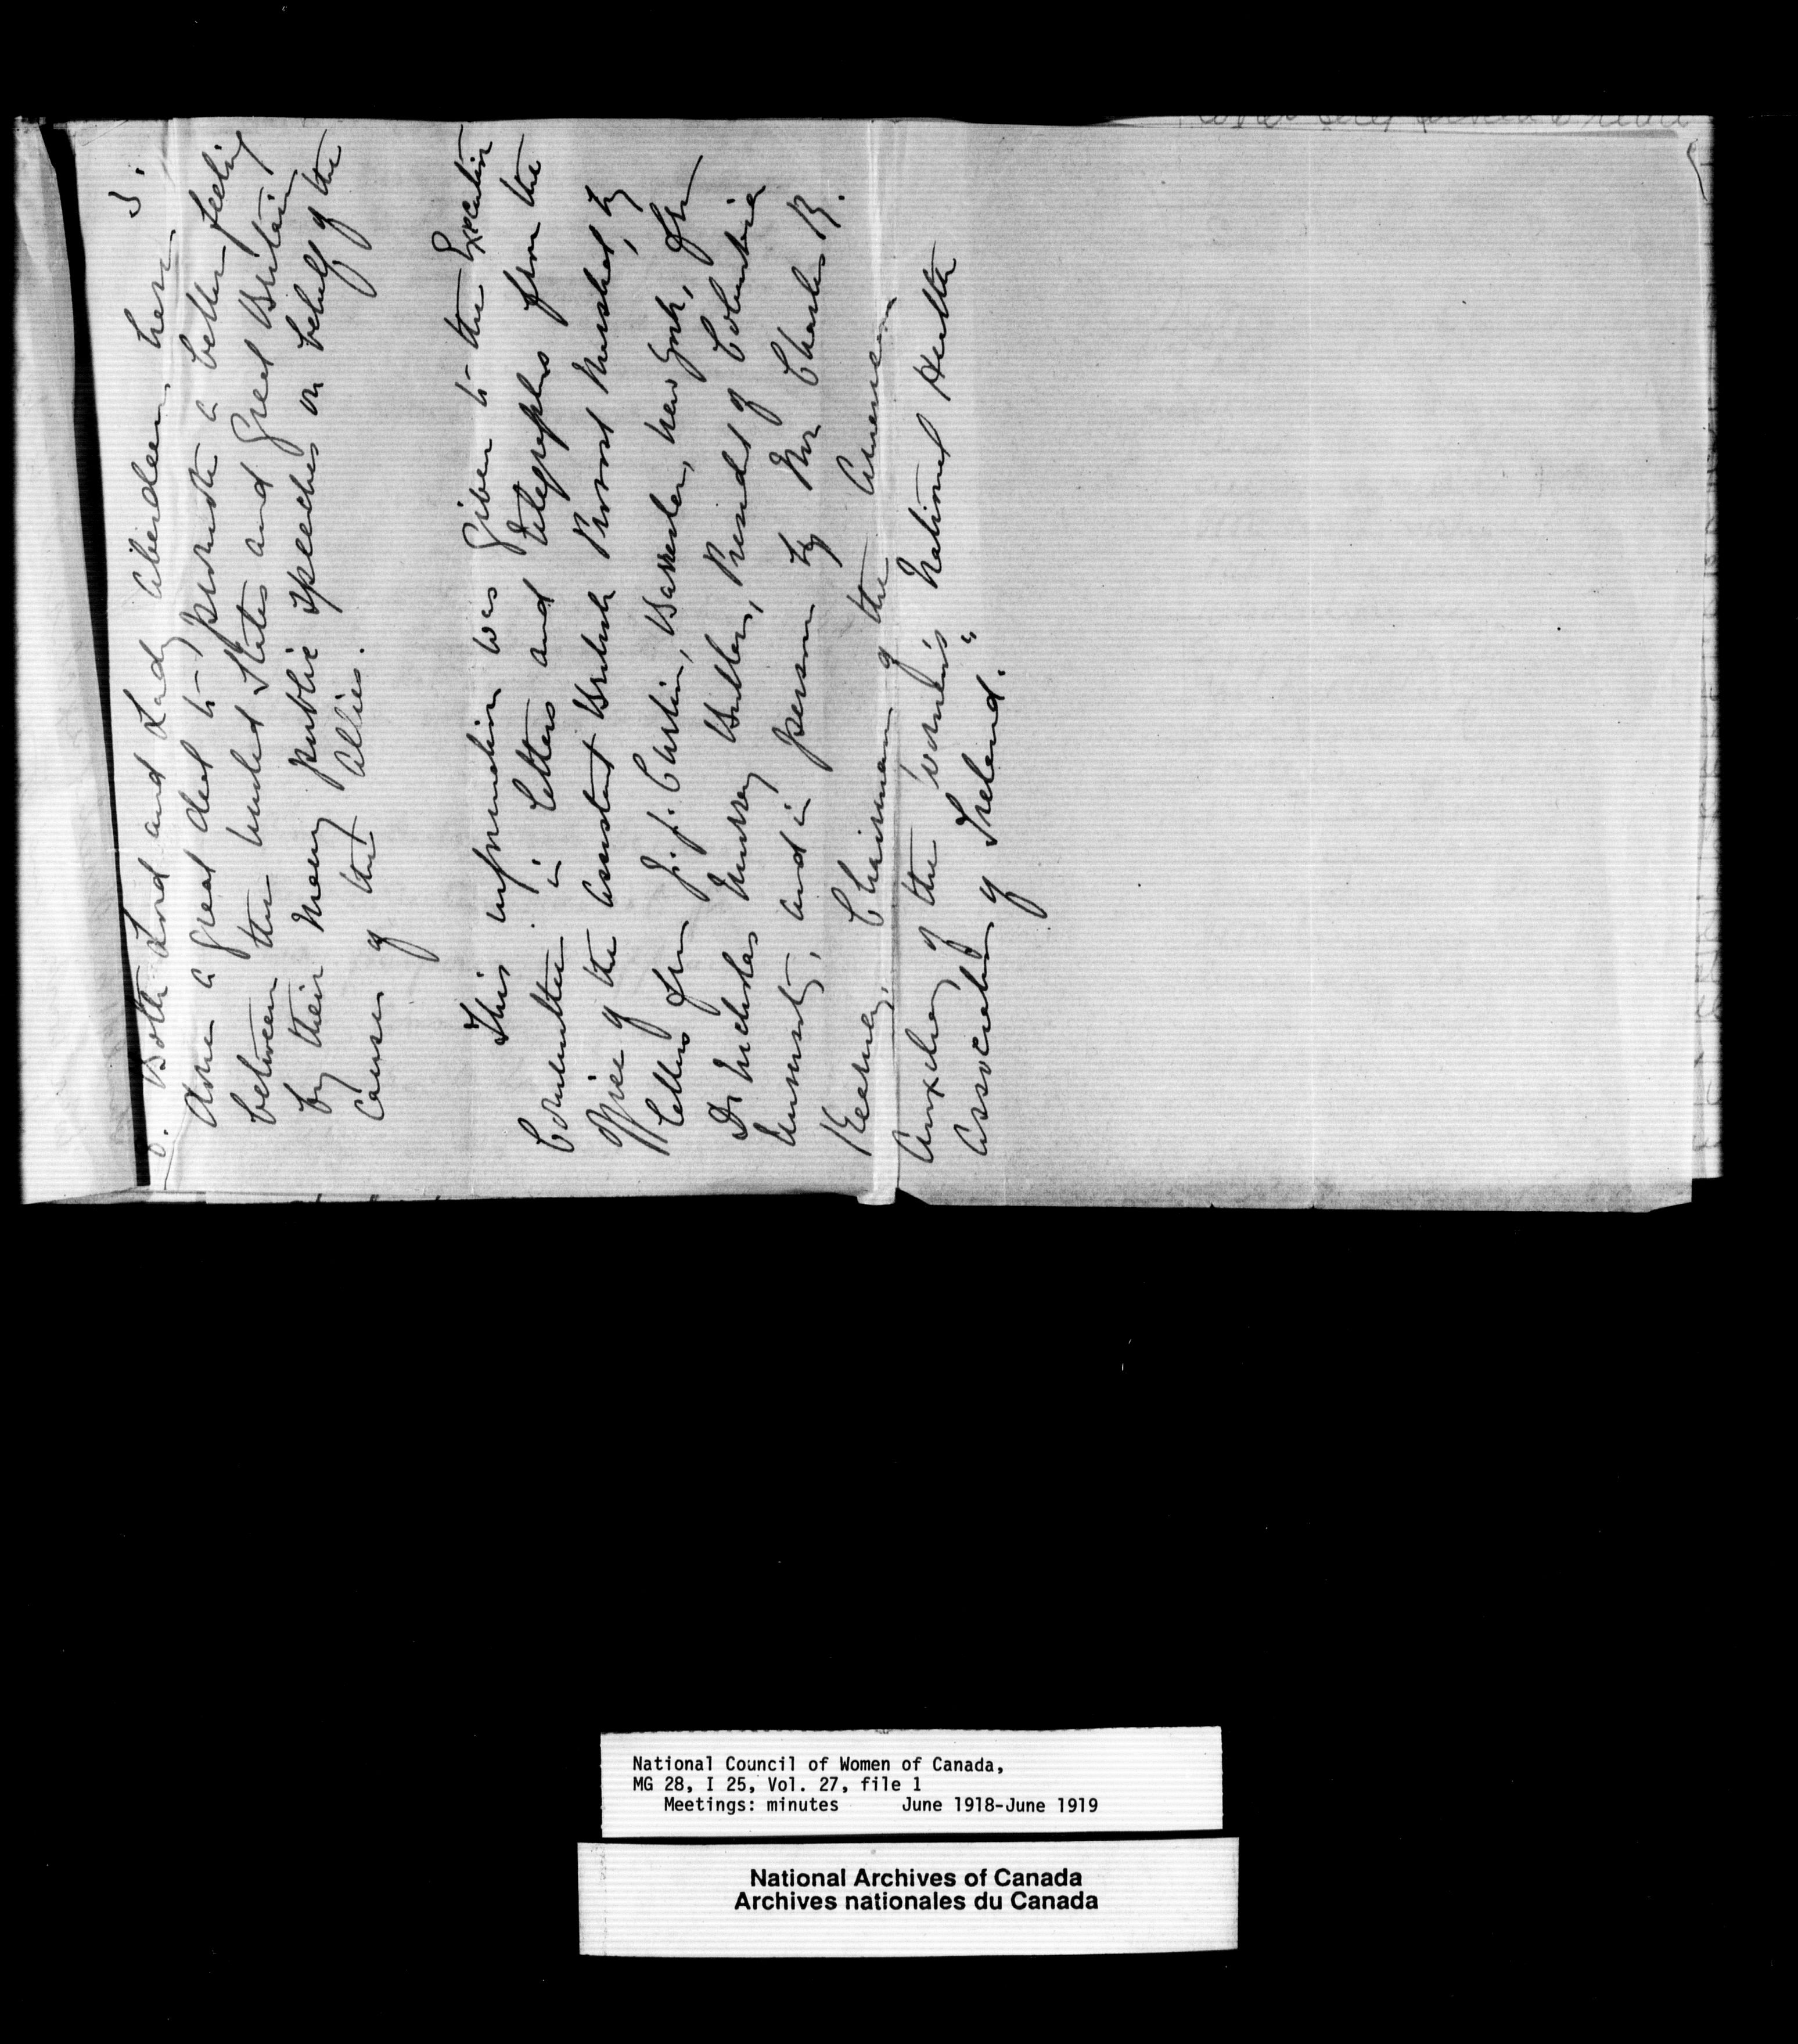 3.
6. Both Lord and Lady Aberdeen have
done a great deal to promote a better feeling
between the United States and Great Britain
by their many public speeches on behalf of the
cause of the Allies.
This information was given to the Executive
Committee in letters and telegraphs from the
Office of the Assistant British Provost Marshal, by
letters from J. J. Curtin, Barrister, New York, from
Dr Nicholas Murray Butler, President of Columbia
University, and in person by Mr Charles R.
Kearney, Chairman of the American
Auxiliary of the Women's National Health
Association of Ireland."
National Council of Women of Canada,
MG 28, I 25, Vol. 27, file 1
Meetings: minutes June 1918-June 1919
National Archives of Canada
Archives nationales du Canada